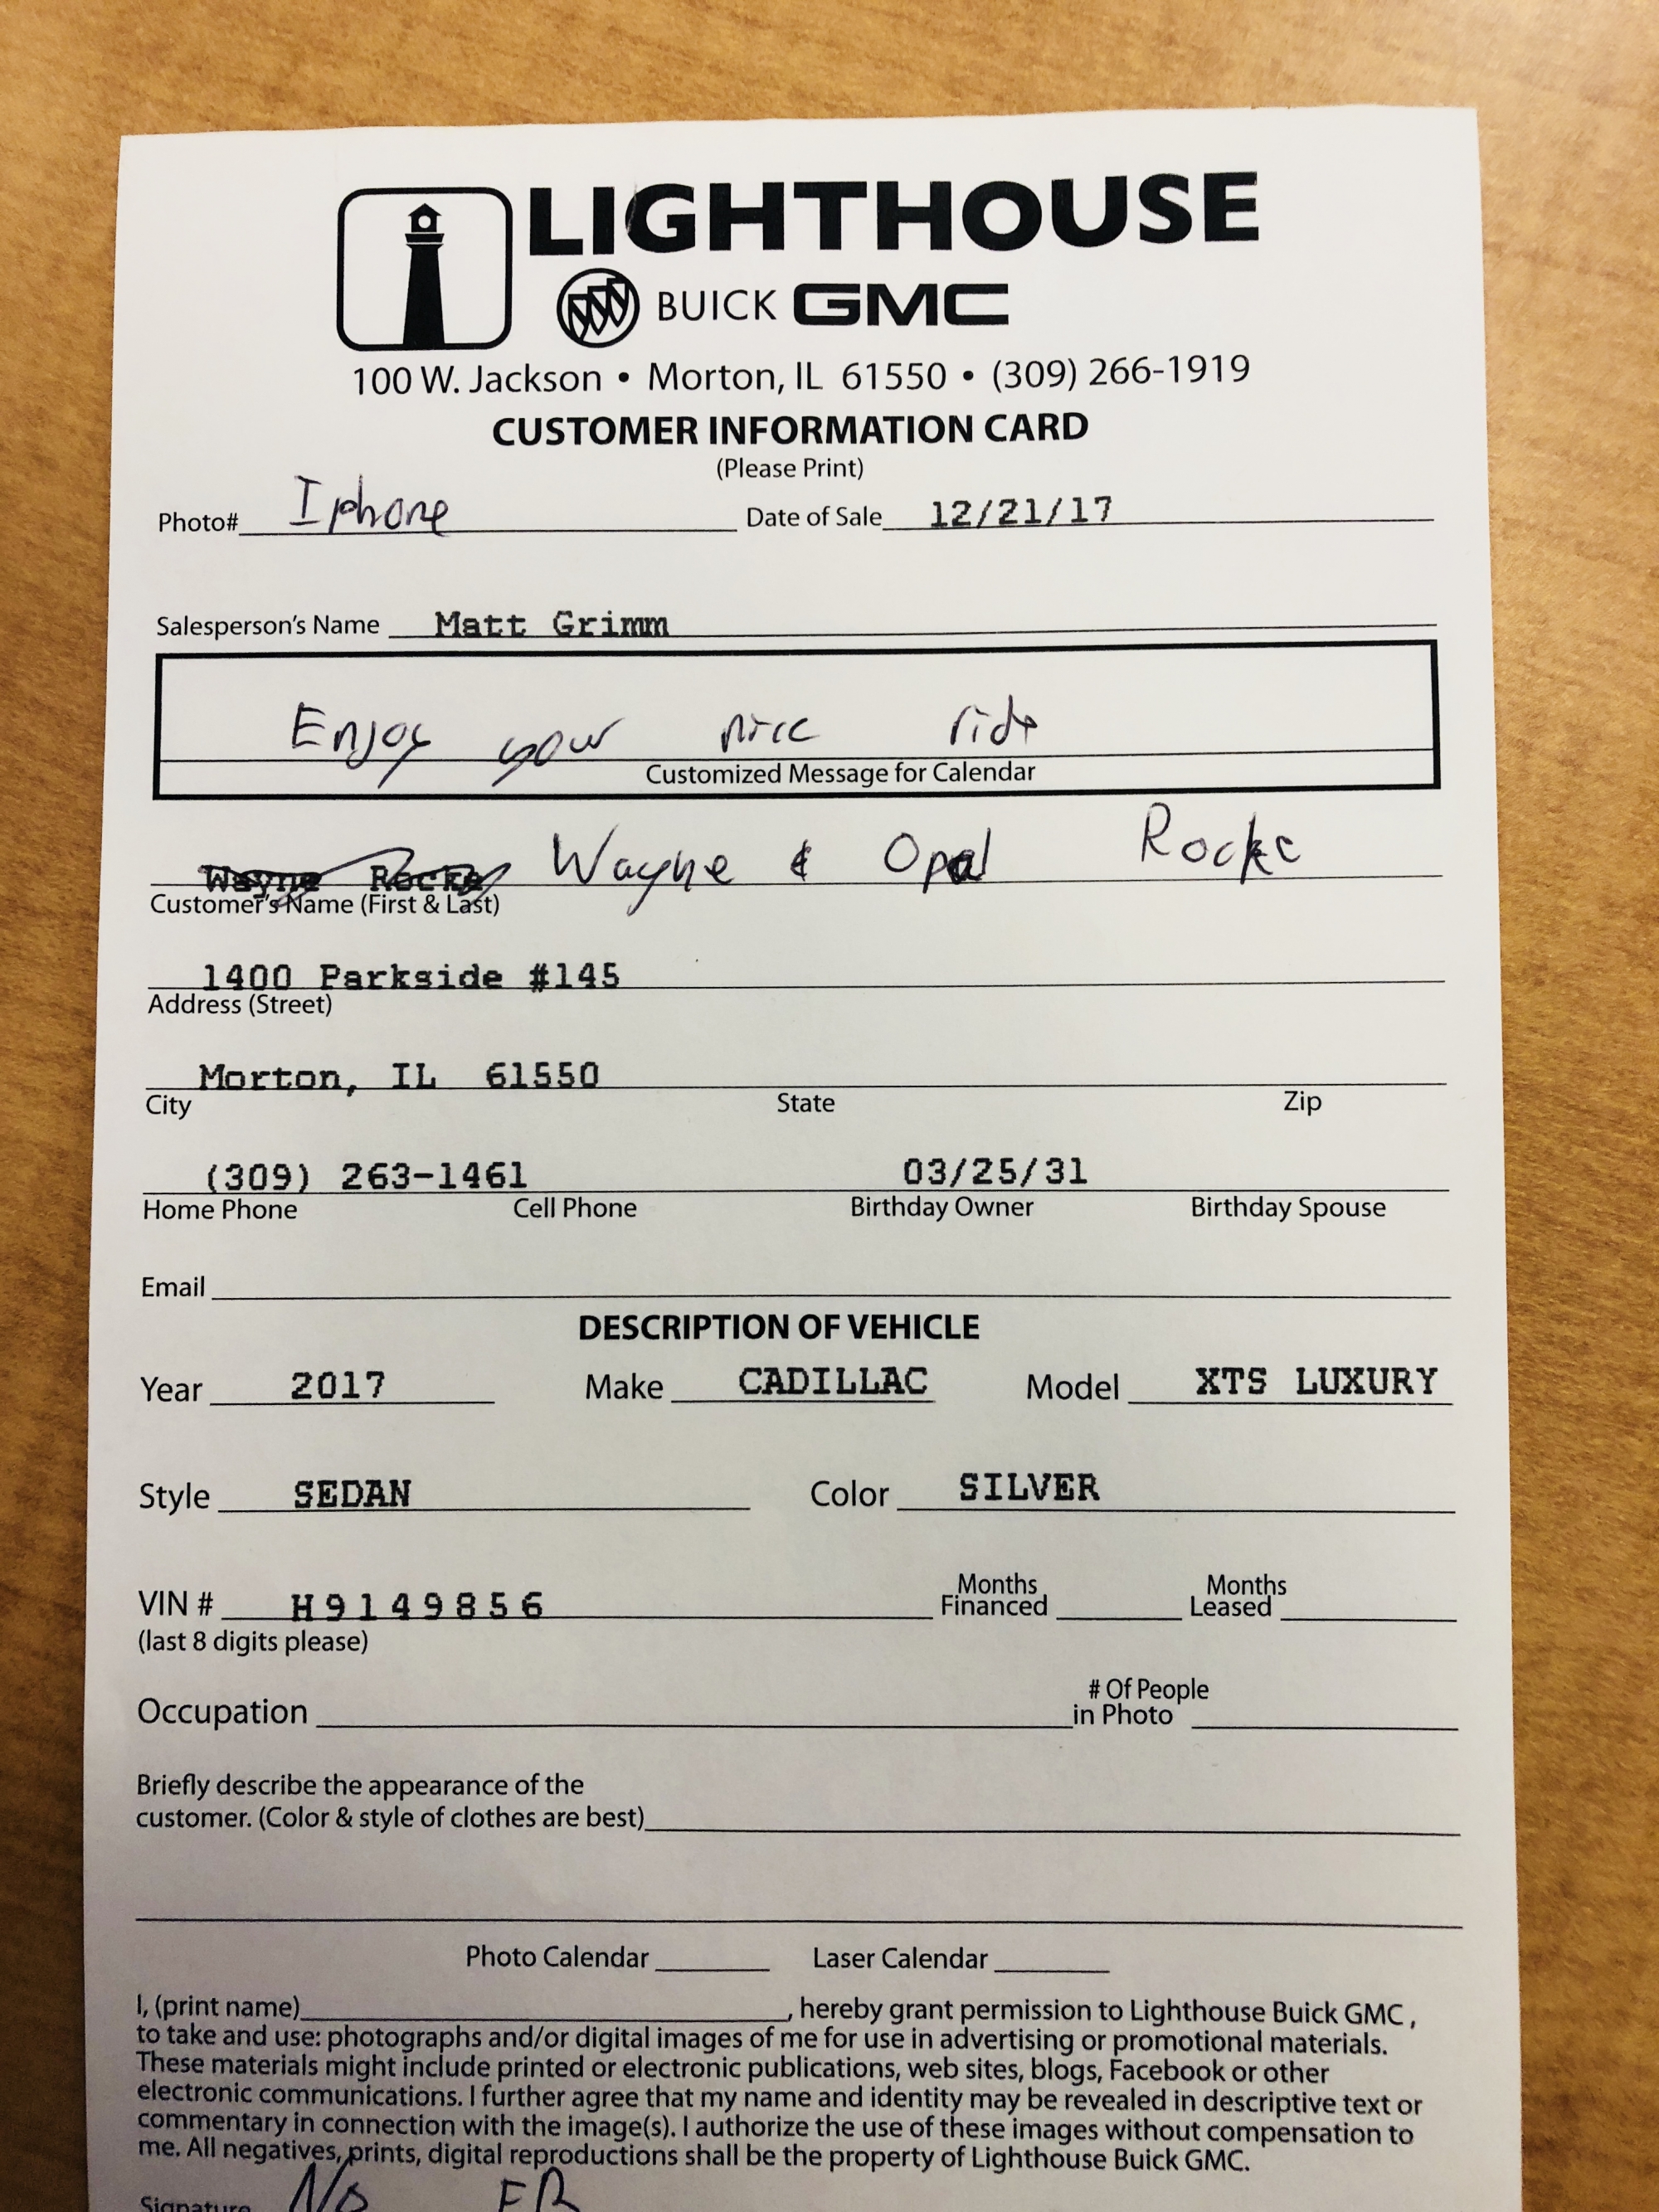 LIGHTHOUSE
BUICK GMC
100 W. Jackson • Morton, IL 61550 • (309) 266-1919
CUSTOMER INFORMATION CARD
(Please Print)
Photo# Iphone Date of Sale 12/21/17
Salesperson's Name Matt Grimm
Enjoy your nice ride
Customized Message for Calendar
Wayne Rocke Wayne & Opal Rocke
Customer's Name (First & Last)
1400 Parkside #145
Address (Street)
Morton, IL 61550
City State Zip
(309) 263-1461 03/25/31
Home Phone Cell Phone Birthday Owner Birthday Spouse
Email
DESCRIPTION OF VEHICLE
Year 2017 Make CADILLAC Model XTS LUXURY
Style SEDAN Color SILVER
VIN # H9149856 Months Financed Months Leased
(last 8 digits please)
Occupation # Of People in Photo
Briefly describe the appearance of the
customer. (Color & style of clothes are best)
Photo Calendar Laser Calendar
I, (print name) , hereby grant permission to Lighthouse Buick GMC,
to take and use: photographs and/or digital images of me for use in advertising or promotional materials.
These materials might include printed or electronic publications, web sites, blogs, Facebook or other
electronic communications. I further agree that my name and identity may be revealed in descriptive text or
commentary in connection with the image(s). I authorize the use of these images without compensation to
me. All negatives, prints, digital reproductions shall be the property of Lighthouse Buick GMC.
Signature No FB